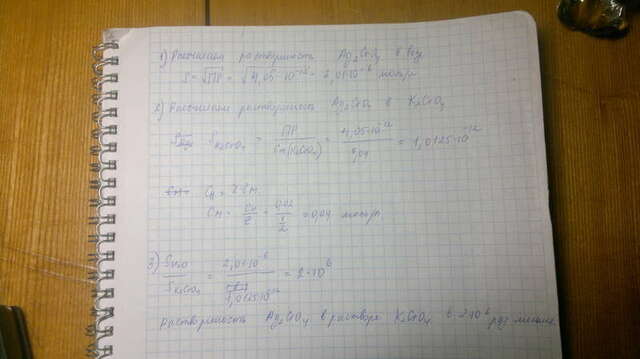 1) Рассчитаем растворимость Ag₂CrO₄ в воде
S = √ПР = √4,05·10⁻¹² = 2,01·10⁻⁶ моль/л
2) Рассчитаем растворимость Ag₂CrO₄ в K₂CrO₄
S K₂CrO₄ = ПР / Cм(K₂CrO₄) = 4,05·10⁻¹² / = 1,0125·10⁻¹²
Cн = z·Cм
Cм = Cн/z = 0,02 / ½ = 0,04 моль/л
3) S H₂O / S K₂CrO₄ = 2,01·10⁻⁶ / 1,0125·10⁻¹² = 2·10⁶
растворимость Ag₂CrO₄ в растворе K₂CrO₄ в 2·10⁶ раз меньше